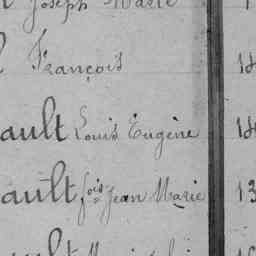 Joseph Marie
François
ault Louis Eugène
ault fois Jean Marie 13